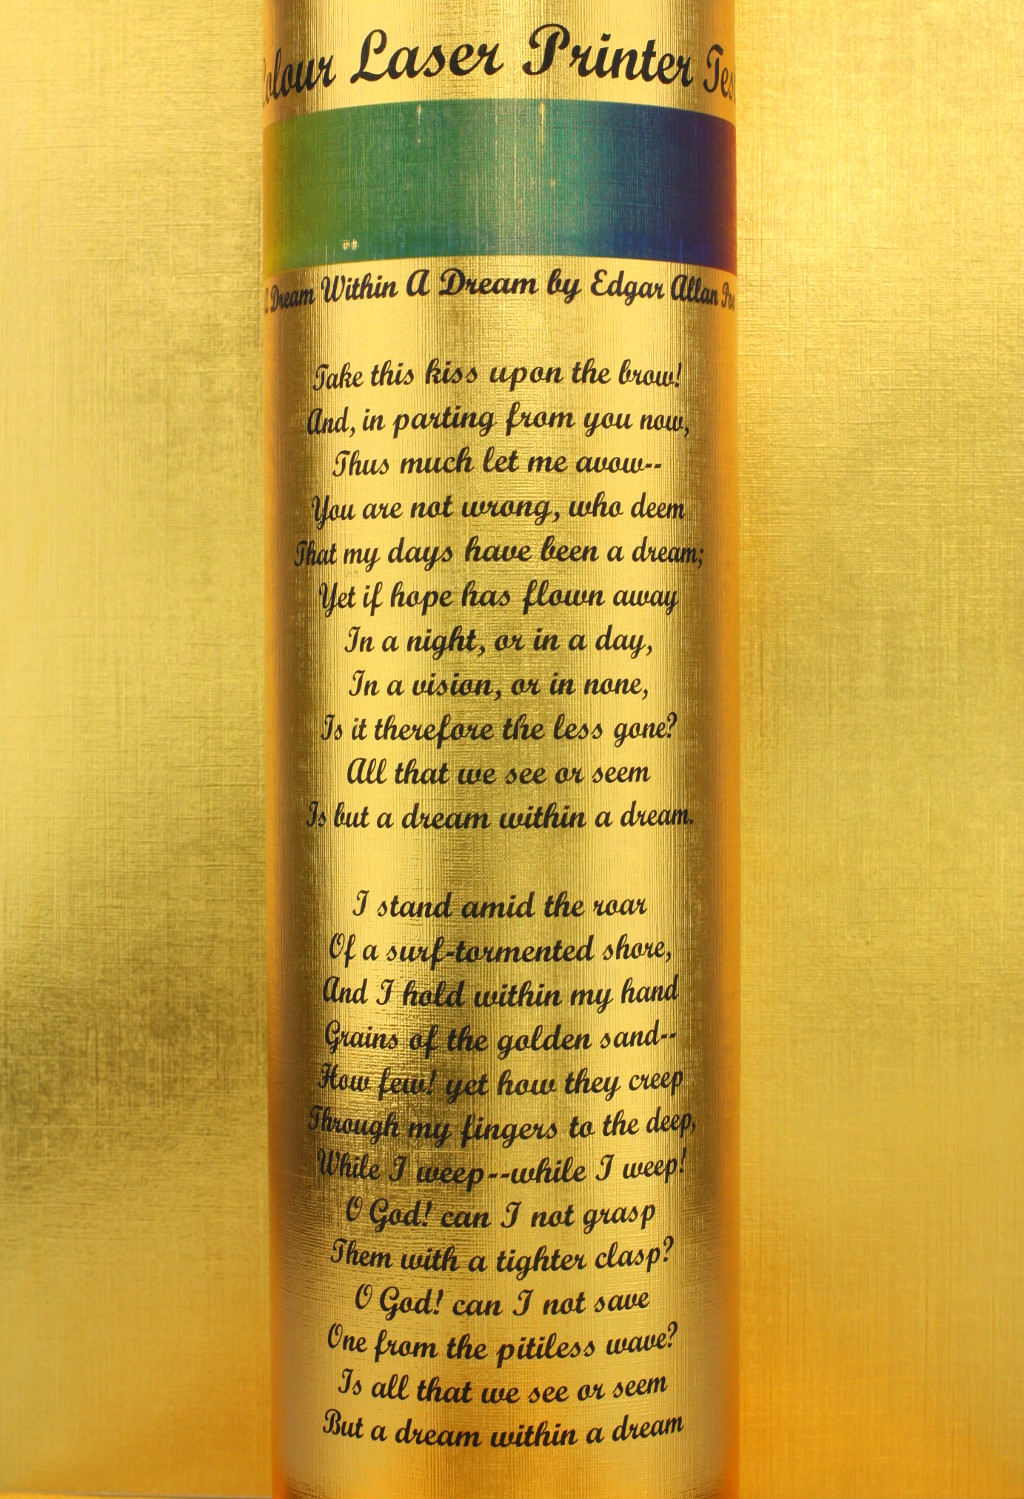 Colour Laser Printer Test
A Dream Within A Dream by Edgar Allan Poe
Take this kiss upon the brow!
And, in parting from you now,
Thus much let me avow--
You are not wrong, who deem
That my days have been a dream;
Yet if hope has flown away
In a night, or in a day,
In a vision, or in none,
Is it therefore the less gone?
All that we see or seem
Is but a dream within a dream.
I stand amid the roar
Of a surf-tormented shore,
And I hold within my hand
Grains of the golden sand--
How few! yet how they creep
Through my fingers to the deep,
While I weep--while I weep!
O God! can I not grasp
Them with a tighter clasp?
O God! can I not save
One from the pitiless wave?
Is all that we see or seem
But a dream within a dream